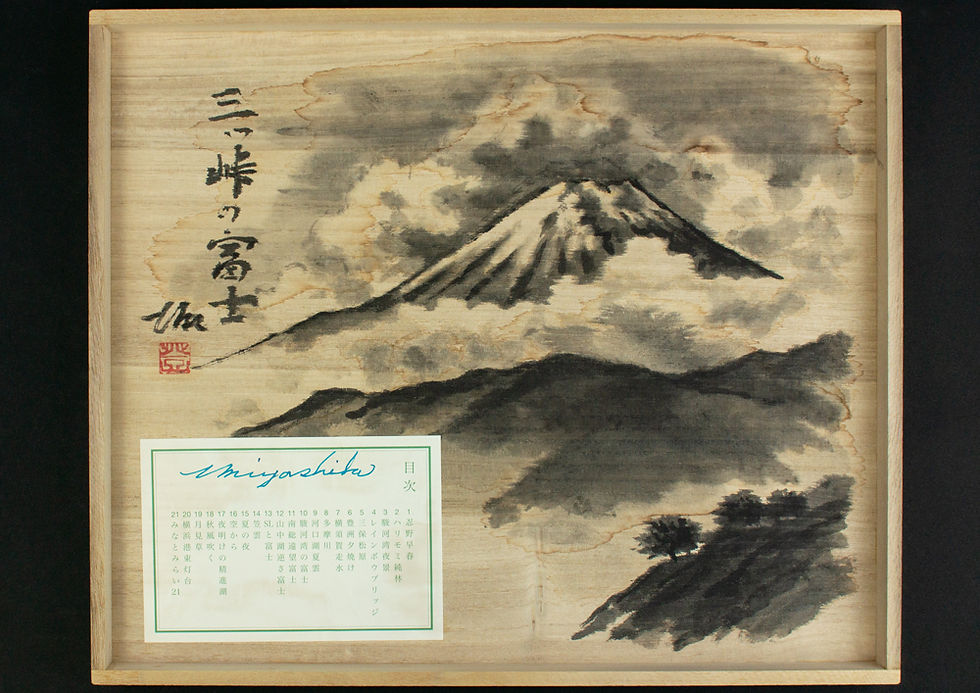 三ツ峠の富士
目次
1 忍野早春
2 ハリモミ純林
3 駿河湾夜景
4 レインボウブリッジ
5 三保松原
6 豊洲夕焼け
7 横須賀走水
8 多摩川
9 河口湖夏雲
10 駿河湾の富士
11 南総遠望富士
12 山中湖逆さ富士
13 SLと富士
14 笠雲
15 夏の夜
16 空から
17 夜明けの精進湖
18 秋風吹く
19 月見草
20 横浜港東灯台
21 みなとみらい21